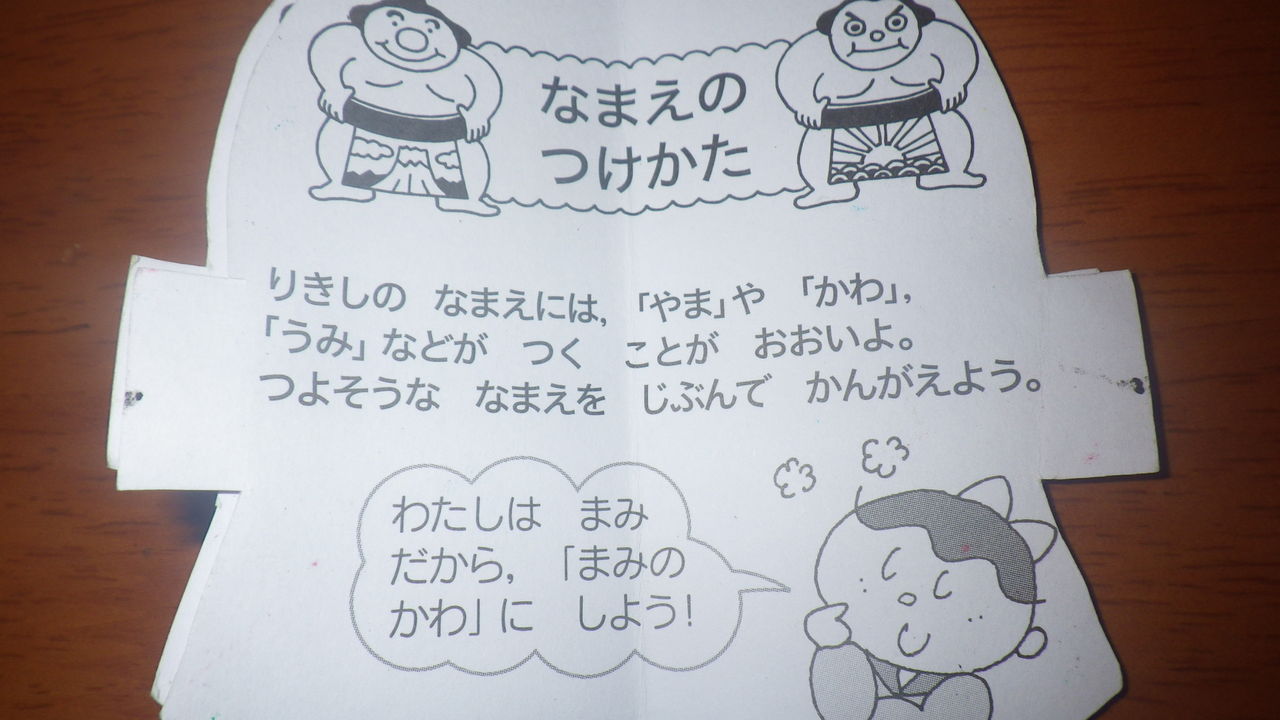 なまえの
つけかた
りきしの　なまえには,「やま」や　「かわ」,
「うみ」などが　つく　ことが　おおいよ。
つよそうな　なまえを　じぶんで　かんがえよう。
わたしは　まみ
だから,　「まみの
かわ」に　しよう!